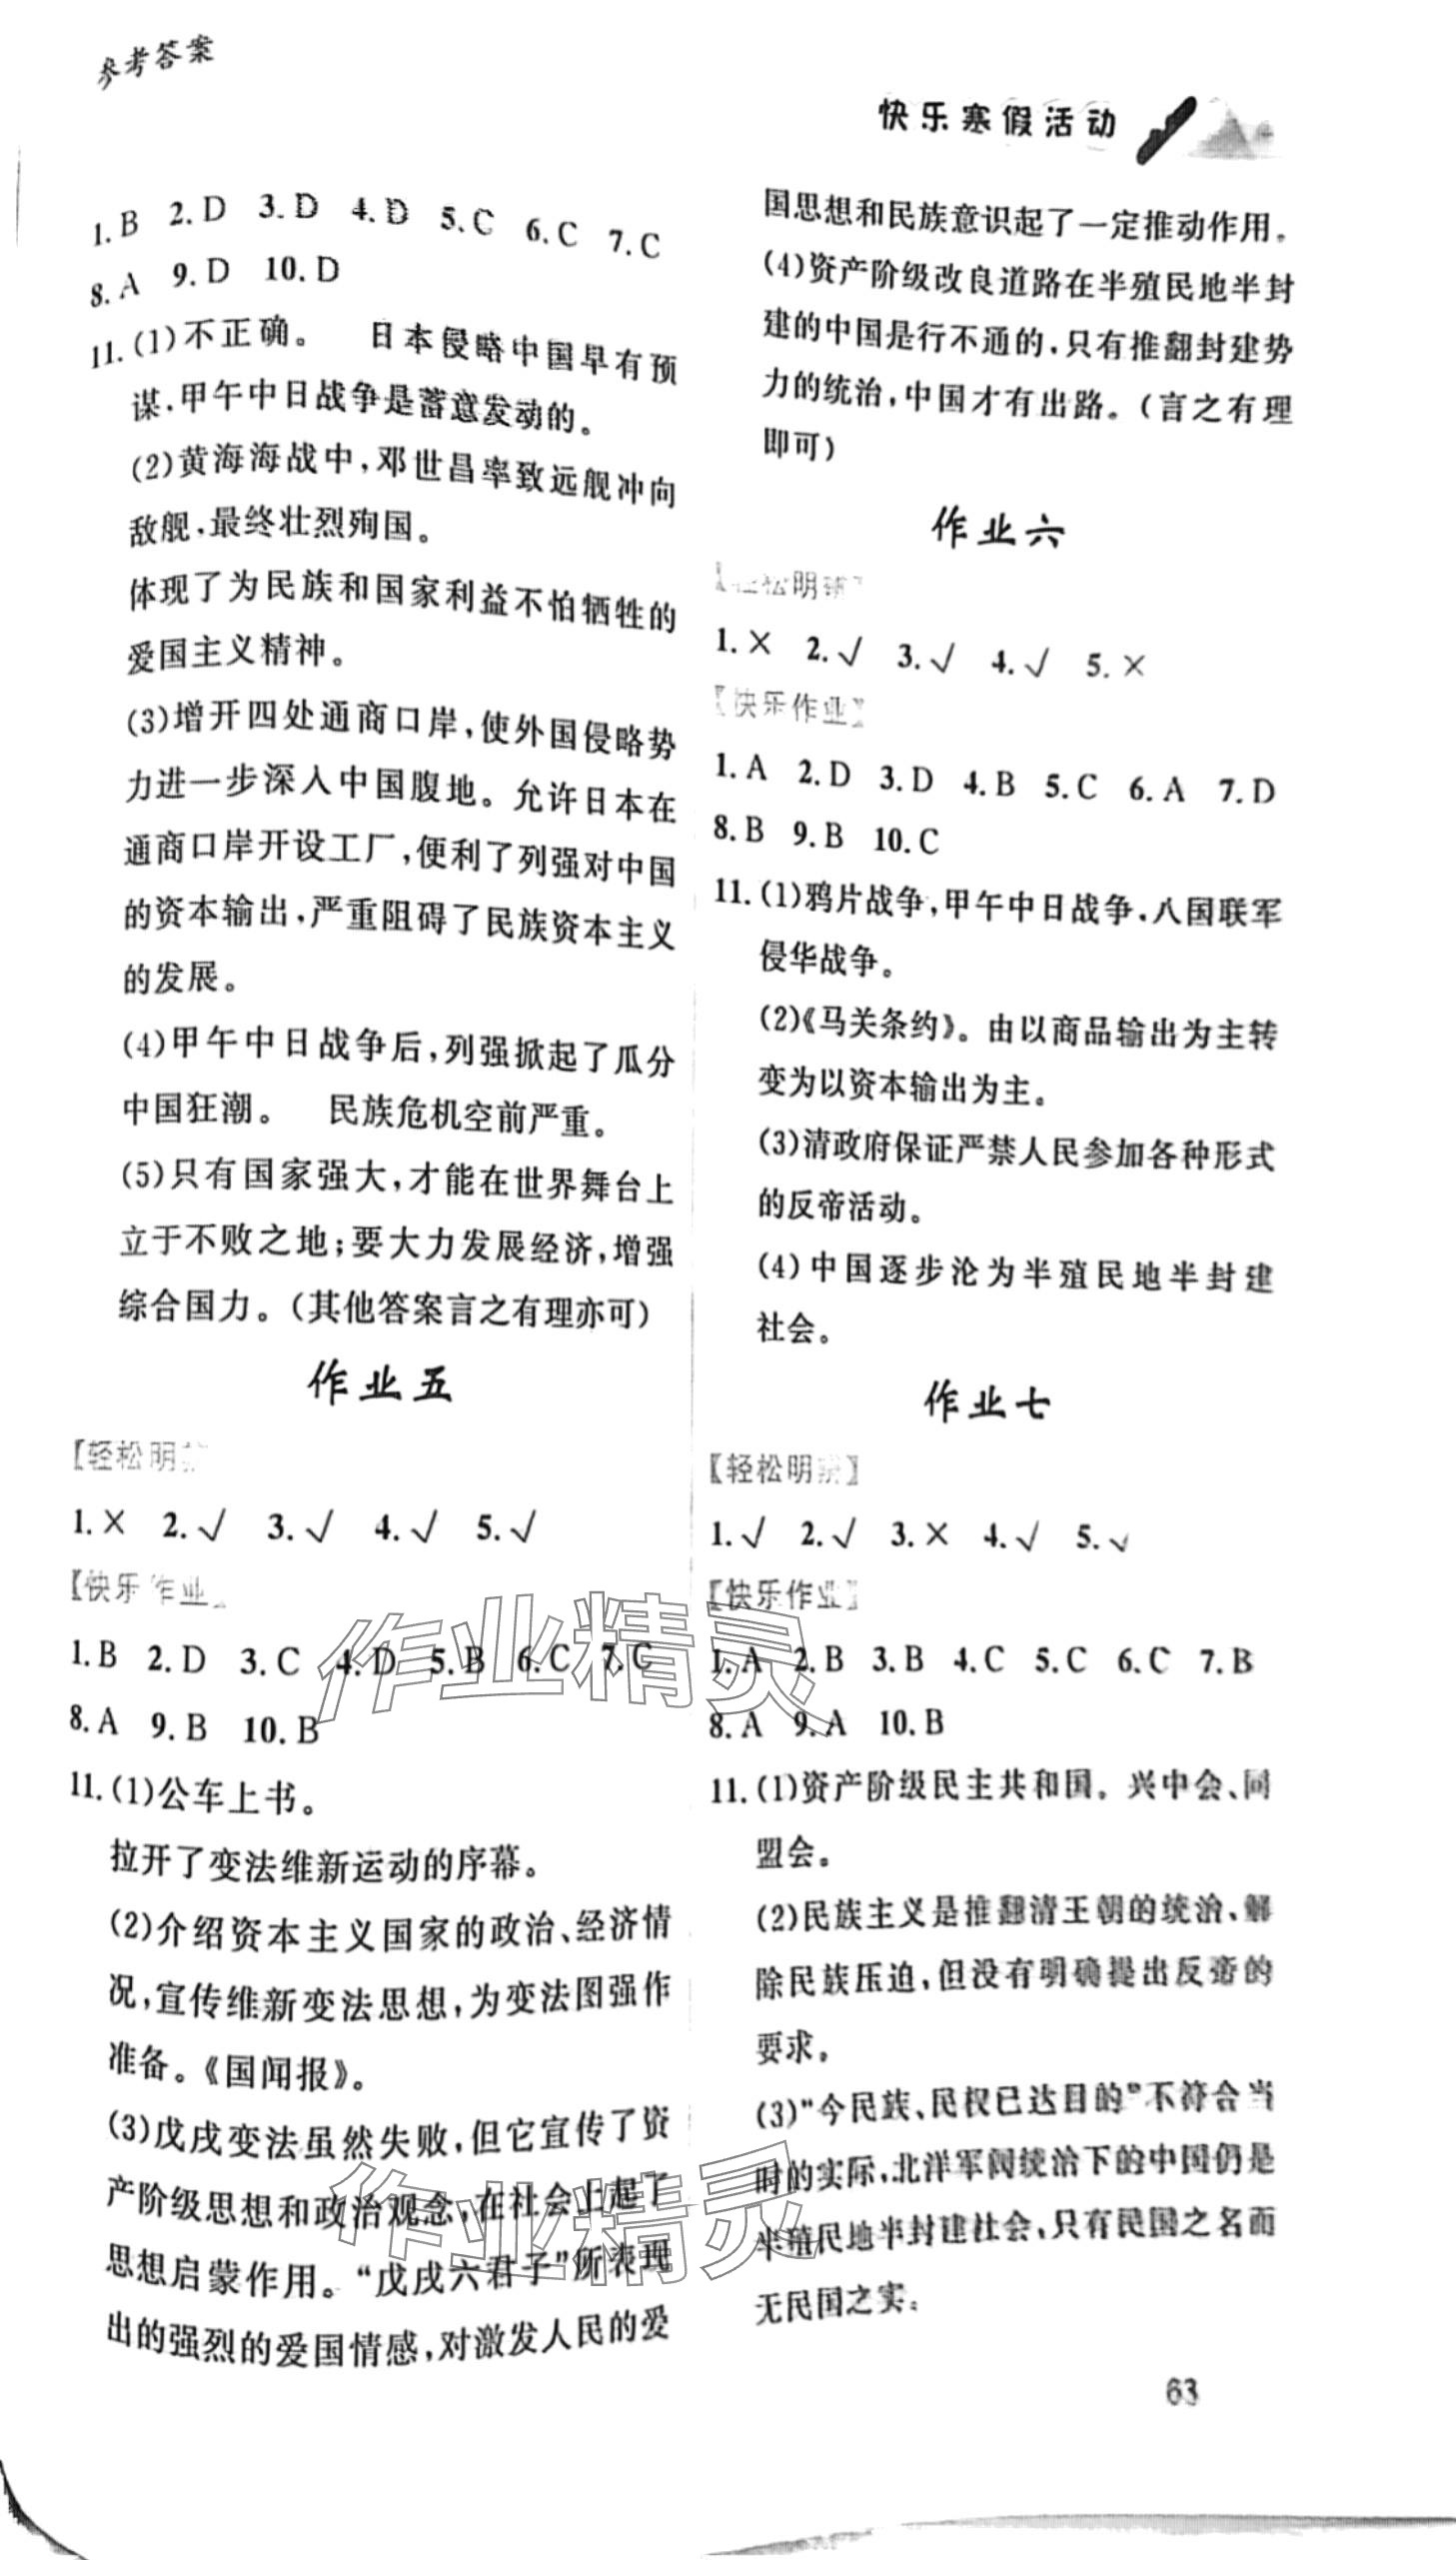 参考答案
快乐寒假活动
1.B 2.D 3.D 4.D 5.C 6.C 7.C
8.A 9.D 10.D
11.(1)不正确。 日本侵略中国早有预
谋,甲午中日战争是蓄意发动的。
(2)黄海海战中,邓世昌率致远舰冲向
敌舰,最终壮烈殉国。
体现了为民族和国家利益不怕牺牲的
爱国主义精神。
(3)增开四处通商口岸,使外国侵略势
力进一步深入中国腹地。允许日本在
通商口岸开设工厂,便利了列强对中国
的资本输出,严重阻碍了民族资本主义
的发展。
(4)甲午中日战争后,列强掀起了瓜分
中国狂潮。 民族危机空前严重。
(5)只有国家强大,才能在世界舞台上
立于不败之地;要大力发展经济,增强
综合国力。(其他答案言之有理亦可)
作业五
【轻松明
1.× 2.√ 3.√ 4.√ 5.√
【快乐作业】
1.B 2.D 3.C 4.D 5.B 6.C 7.C
8.A 9.B 10.B
11.(1)公车上书。
拉开了变法维新运动的序幕。
(2)介绍资本主义国家的政治、经济情
况,宣传维新变法思想,为变法图强作
准备。《国闻报》。
(3)戊戌变法虽然失败,但它宣传了资
产阶级思想和政治观念,在社会上起了
思想启蒙作用。“戊戌六君子”所表现
出的强烈的爱国情感,对激发人民的爱
国思想和民族意识起了一定推动作用。
(4)资产阶级改良道路在半殖民地半封
建的中国是行不通的,只有推翻封建势
力的统治,中国才有出路。(言之有理
即可)
作业六
【轻松明辨】
1.× 2.√ 3.√ 4.√ 5.×
【快乐作业】
1.A 2.D 3.D 4.B 5.C 6.A 7.D
8.B 9.B 10.C
11.(1)鸦片战争,甲午中日战争,八国联军
侵华战争。
(2)《马关条约》。由以商品输出为主转
变为以资本输出为主。
(3)清政府保证严禁人民参加各种形式
的反帝活动。
(4)中国逐步沦为半殖民地半封建
社会。
作业七
【轻松明辨】
1.√ 2.√ 3.× 4.√ 5.√
【快乐作业】
1.A 2.B 3.B 4.C 5.C 6.C 7.B
8.A 9.A 10.B
11.(1)资产阶级民主共和国。兴中会、同
盟会。
(2)民族主义是推翻清王朝的统治、解
除民族压迫,但没有明确提出反帝的
要求。
(3)“今民族、民权已达目的”不符合当
时的实际,北洋军阀统治下的中国仍是
半殖民地半封建社会,只有民国之名而
无民国之实。
63
作业精灵
作业精灵